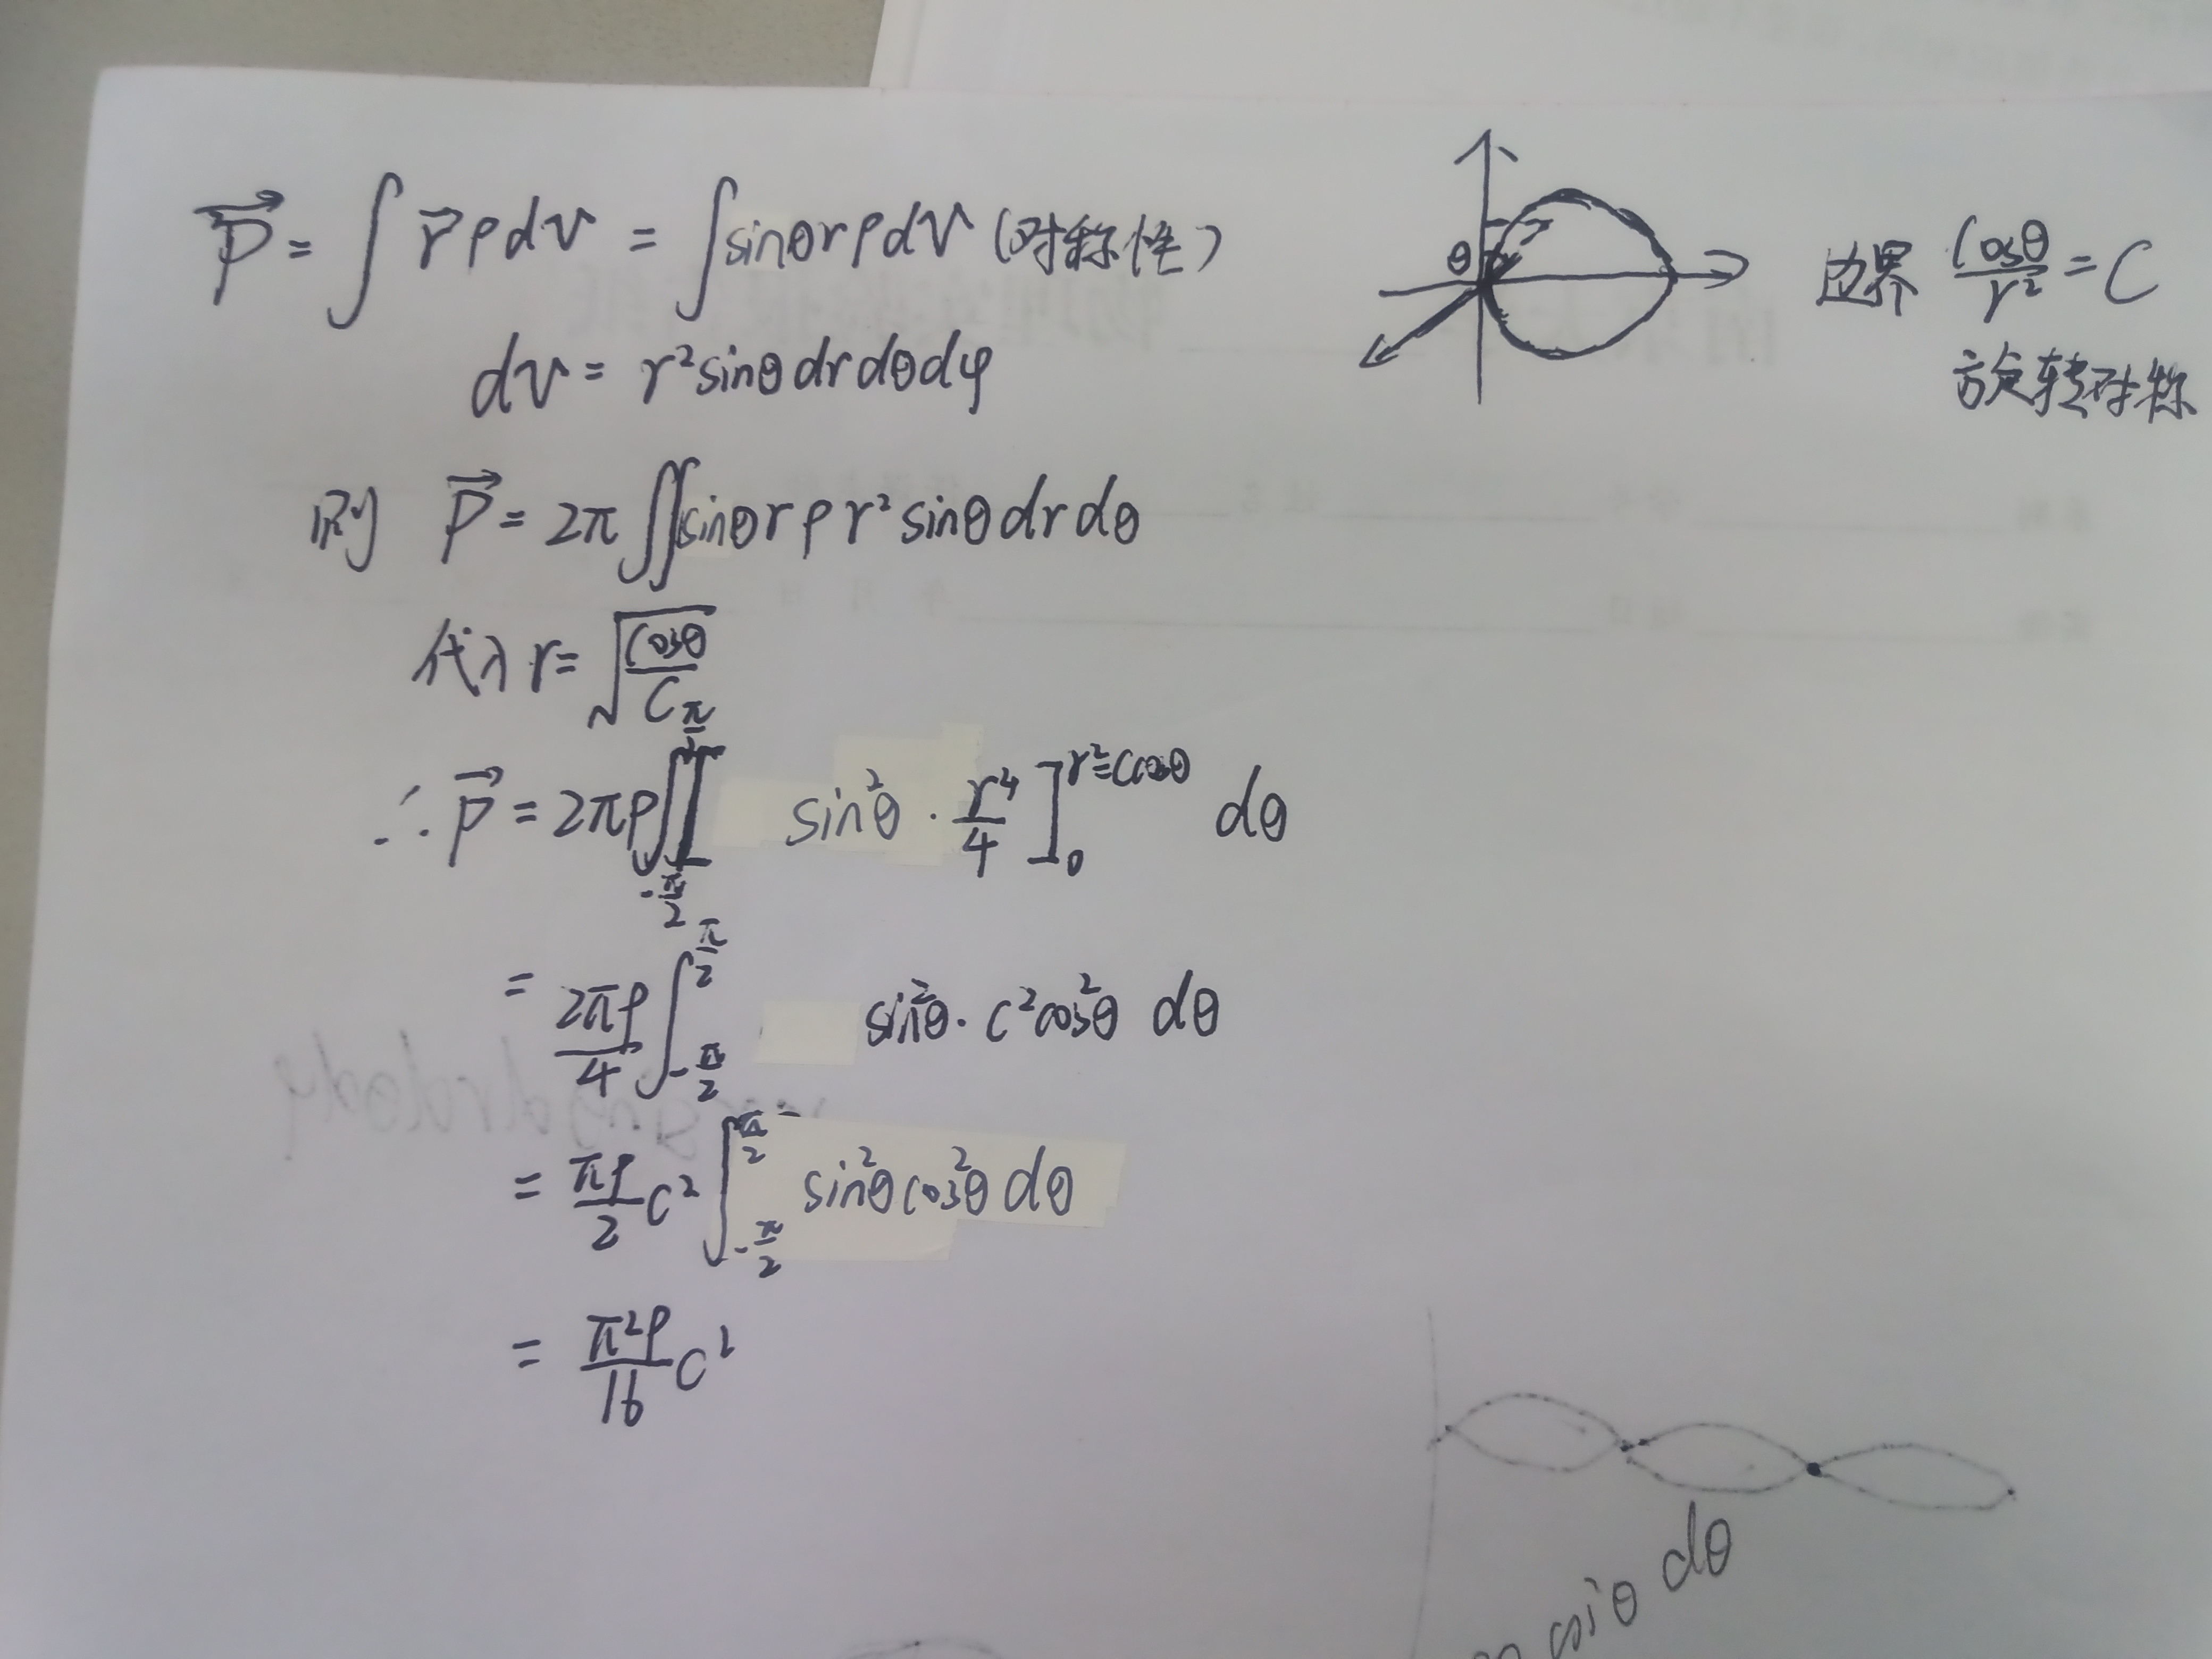 $\vec{P} = \int \vec{r} \rho dv = \int \sin\theta r \rho dv$ (对称性)
$dv = r^2 \sin\theta dr d\theta d\varphi$
θ
边界 $\frac{\cos\theta}{r^2} = C$
旋转对称
则 $\vec{P} = 2\pi \iint \sin\theta r \rho r^2 \sin\theta dr d\theta$
代入 $r = \sqrt{\frac{\cos\theta}{C}}$
$\therefore \vec{P} = 2\pi\rho \int_{-\frac{\pi}{2}}^{\frac{\pi}{2}} [ \sin^2\theta \cdot \frac{r^4}{4} ]_0^{r^2 = C\cos\theta} d\theta$
$= \frac{2\pi\rho}{4} \int_{-\frac{\pi}{2}}^{\frac{\pi}{2}} \sin^2\theta \cdot C^2 \cos^2\theta d\theta$
$= \frac{\pi\rho}{2} C^2 \int_{-\frac{\pi}{2}}^{\frac{\pi}{2}} \sin^2\theta \cos^2\theta d\theta$
$= \frac{\pi^2\rho}{16} C^2$
dθ